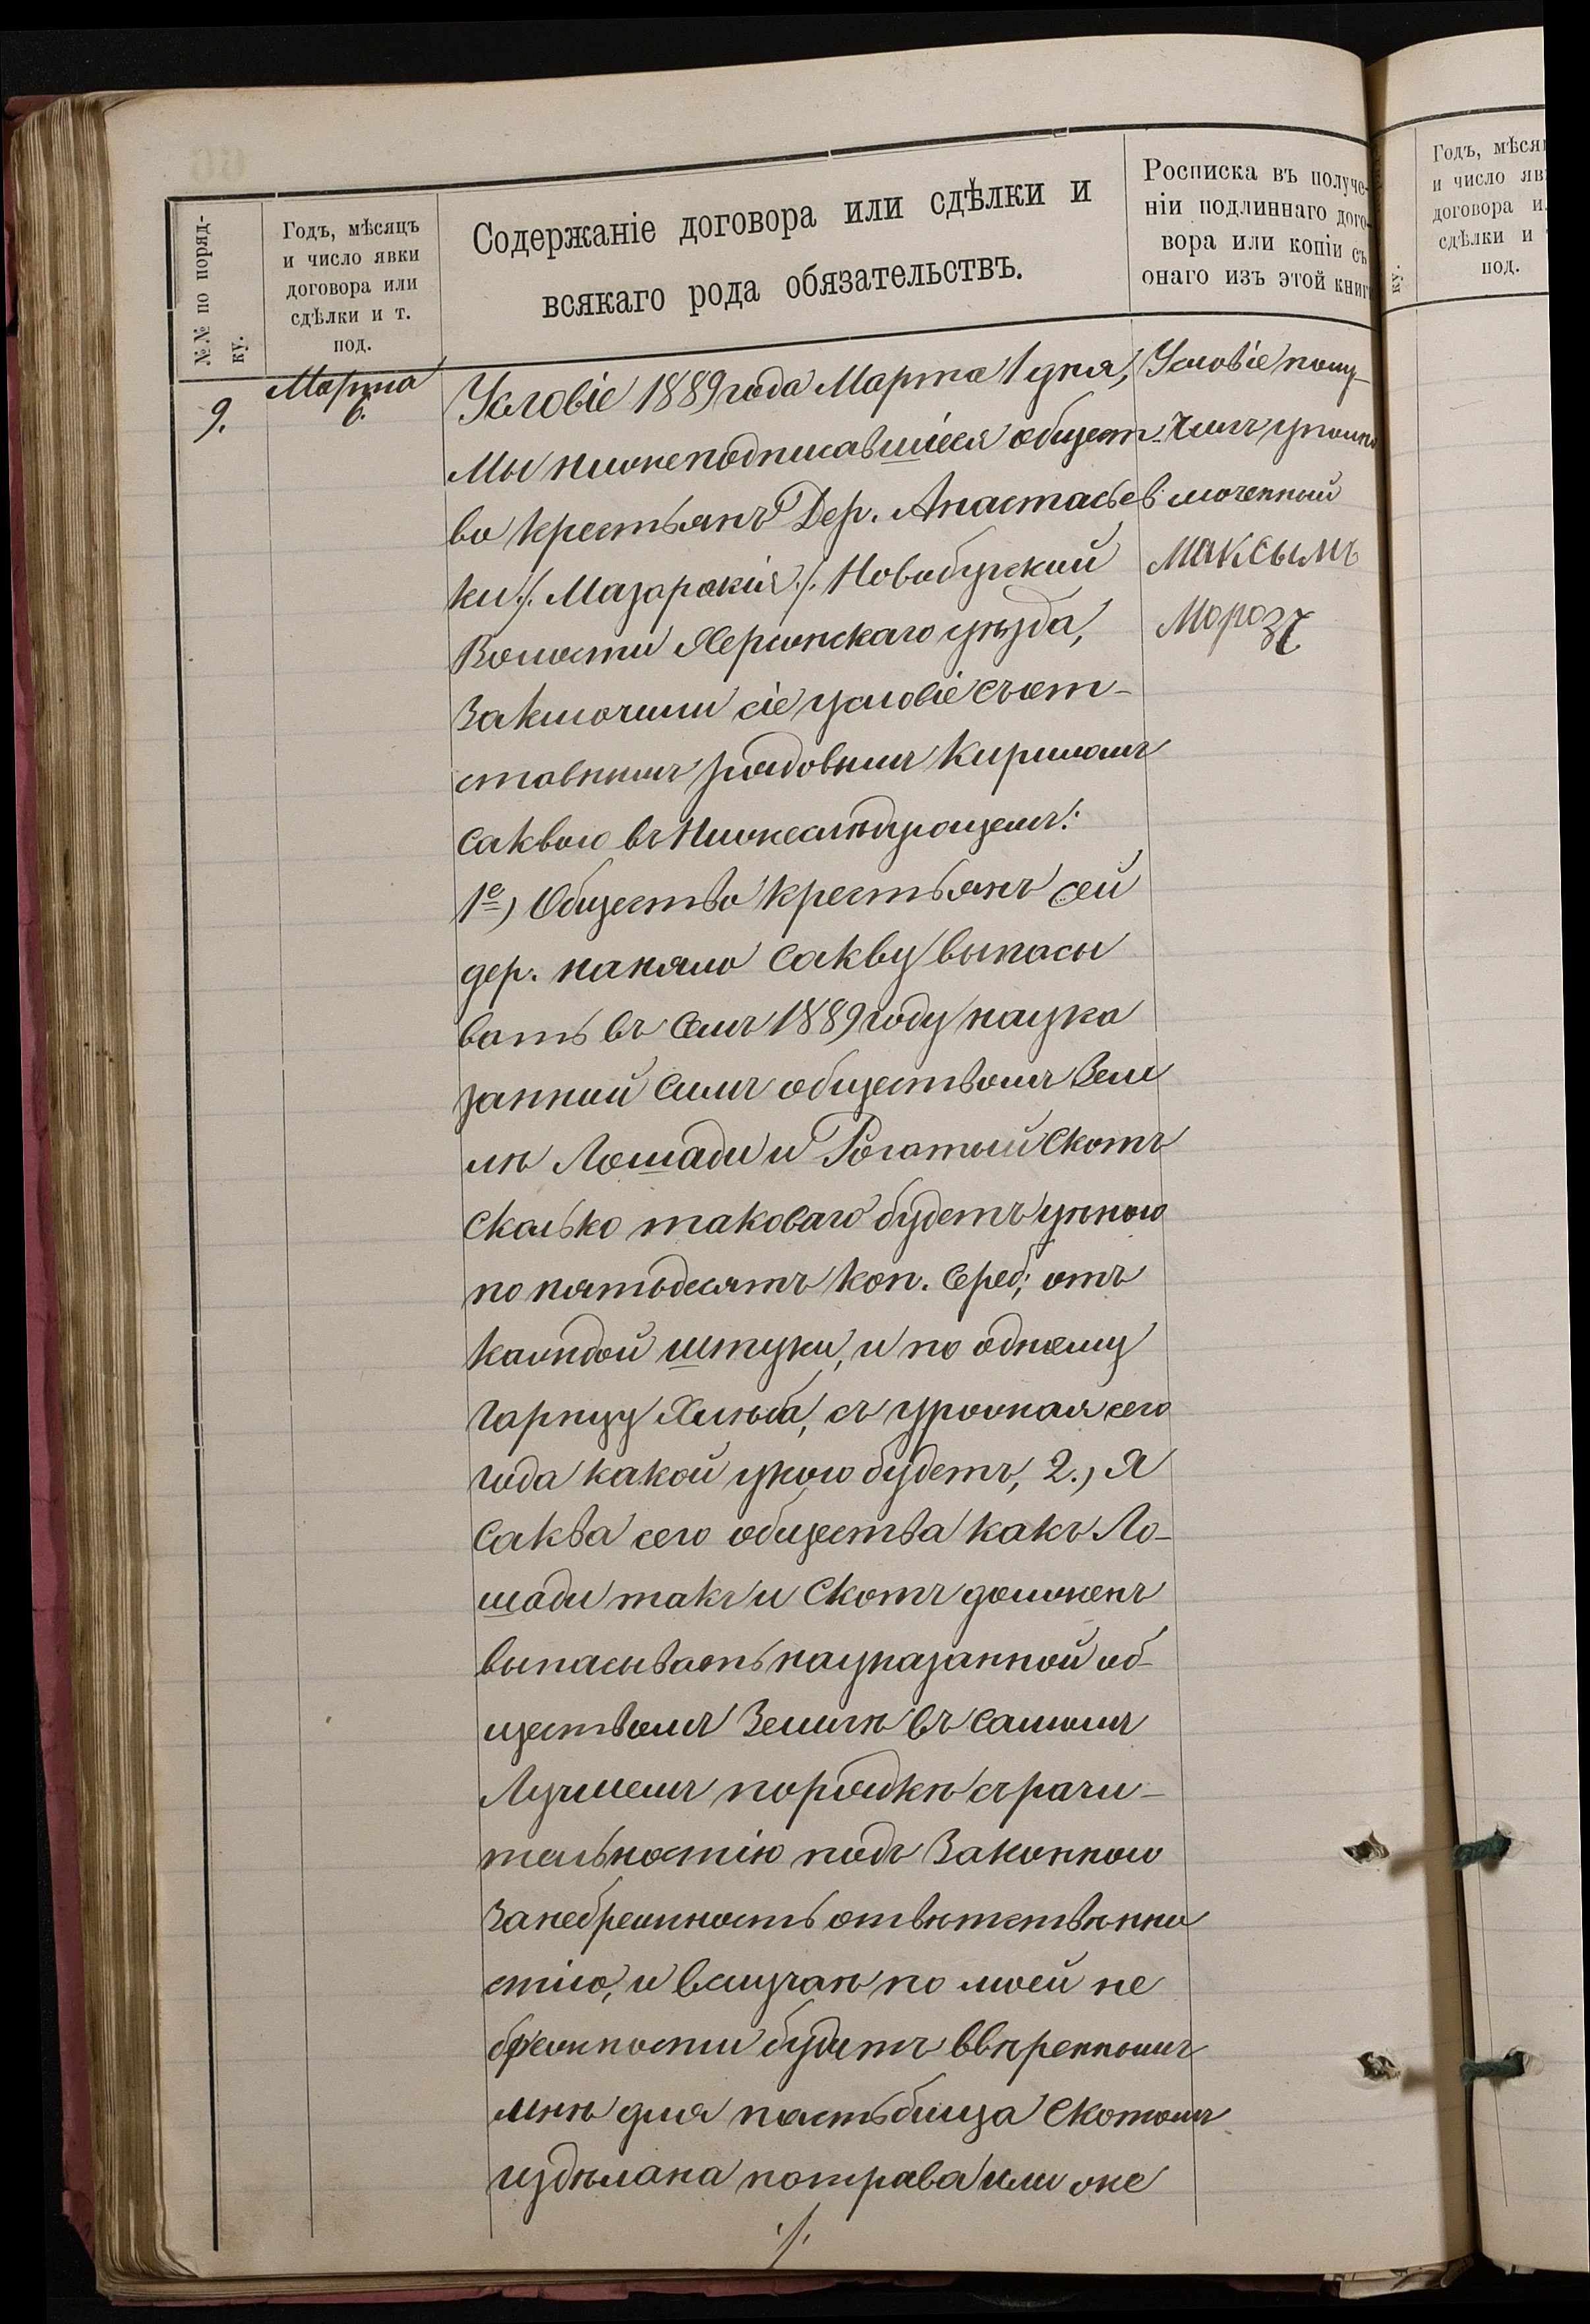 №№ по поряд-
ку.
Годъ, мѣсяцъ
и число явки
договора или
сдѣлки и т.
под.
Содержаніе договора или сдѣлки и
всякаго рода обязательствъ.
Росписка въ получе-
ніи подлиннаго дого-
вора или копіи съ
онаго изъ этой книг
9.
Марта
6.
Условіе 1889 года Марта 1 дня,
Мы нижеподписавшіеся общест-
во крестьянъ Дер. Анастасьев
ки ./. Мазаракія ./. Новобугской
Волости Херсонскаго уѣзда,
Заключили сіе условіе съ от-
ставнымъ рядовымъ Кириломъ
Саквою въ Нижеслѣдующемъ:
1е) Общество крестьянъ сей
дер. наняло Сакву выпасы
вать въ Семъ 1889 году на ука
занной Симъ обществомъ Зем
лѣ Лошади и Рогатый Скотъ
Сколько таковаго будетъ цѣною
по пятьдесятъ коп. Сереб; отъ
каждой штуки, и по одному
гарнцу Хлѣба, съ урожая сего
года какой у кого будетъ, 2.) Я
Саква сего общества какъ Ло-
шади такъ и Скотъ долженъ
выпасывать на указанной об-
ществомъ Землѣ въ самомъ
Лучшемъ порядкѣ съ рачи-
тельностію подъ Законною
За небрежность отвѣтствѣнно
стію, и в случаѣ по моей не
брежности будитъ ввѣреннымъ
мнѣ для пастьбища Скотомъ
издѣлана потрава или же
./.
Условіе полу-
чилъ уполно
моченный
Максымъ
Мороз
Годъ, мѣся
и число яв
договора и
сдѣлки и
под.
ку.